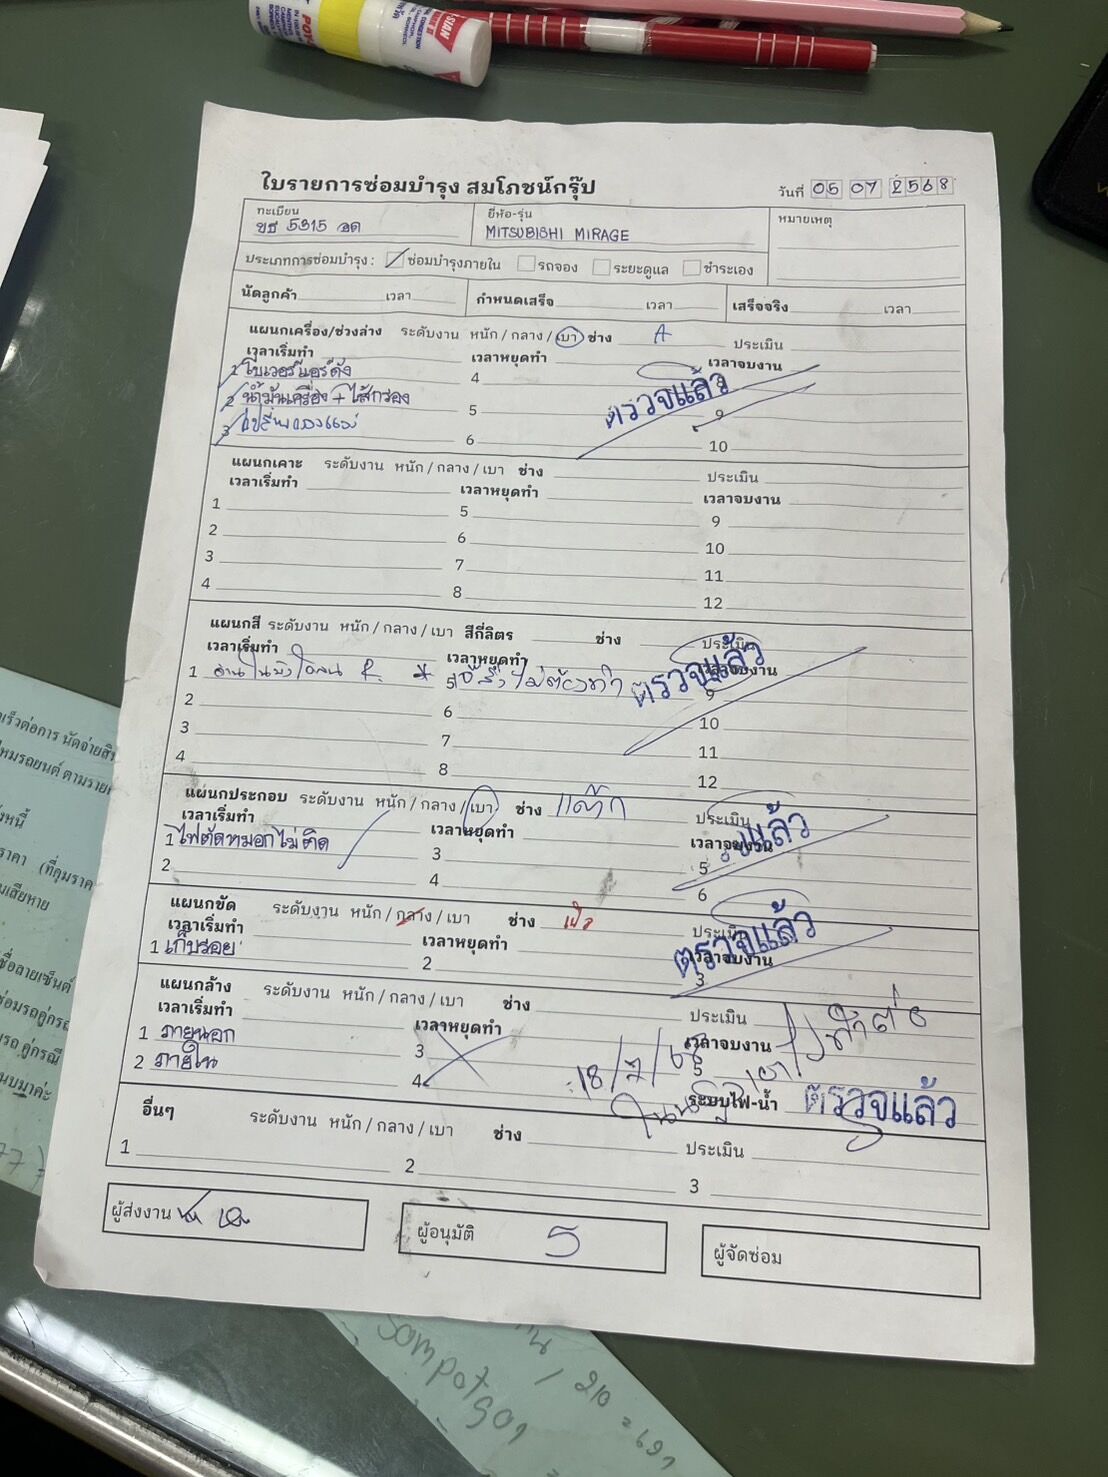 ใบรายการซ่อมบำรุง สมโภชน์กรุ๊ป
วันที่ 05 07 2568
ทะเบียน
5315
ยี่ห้อ-รุ่น
MITSUBISHI MIRAGE
หมายเหตุ
ประเภทการซ่อมบำรุง : ซ่อมบำรุงภายใน รถจอง ระยะดูแล ชำระเอง
นัดลูกค้า เวลา กำหนดเสร็จ เวลา เสร็จจริง เวลา
แผนกเครื่อง/ช่วงล่าง ระดับงาน หนัก / กลาง / เบา ช่าง A ประเมิน
เวลาเริ่มทำ เวลาหยุดทำ เวลาจบงาน
1 โบเวอร์แอร์ดัง 4
2 น้ำมันเครื่อง + ไส้กรอง 5 9
3 6 10
ตรวจแล้ว
แผนกเคาะ ระดับงาน หนัก / กลาง / เบา ช่าง ประเมิน
เวลาเริ่มทำ เวลาหยุดทำ เวลาจบงาน
1 5 9
2 6 10
3 7 11
4 8 12
แผนกสี ระดับงาน หนัก / กลาง / เบา สีกี่ลิตร ช่าง ประเมิน
เวลาเริ่มทำ เวลาหยุดทำ เวลาจบงาน
1 5 ไม่ต้องทำ 9
2 6 10
3 7 11
4 8 12
ตรวจแล้ว
แผนกประกอบ ระดับงาน หนัก / กลาง / เบา ช่าง ประเมิน
เวลาเริ่มทำ เวลาหยุดทำ เวลาจบงาน
1 ไฟตัดหมอกไม่ติด 3 5
2 4 6
แล้ว
แผนกขัด ระดับงาน หนัก / กลาง / เบา ช่าง ประเมิน
เวลาเริ่มทำ เวลาหยุดทำ เวลาจบงาน
1 เก็บรอย 2 3
ตรวจแล้ว
แผนกล้าง ระดับงาน หนัก / กลาง / เบา ช่าง ประเมิน
เวลาเริ่มทำ เวลาหยุดทำ เวลาจบงาน
1 ภายนอก 3 5
2 ภายใน 4 ระบบไฟ-น้ำ
18/7/68
ตรวจแล้ว
อื่นๆ ระดับงาน หนัก / กลาง / เบา ช่าง ประเมิน
1 2 3
ผู้ส่งงาน
ผู้อนุมัติ 5
ผู้จัดซ่อม